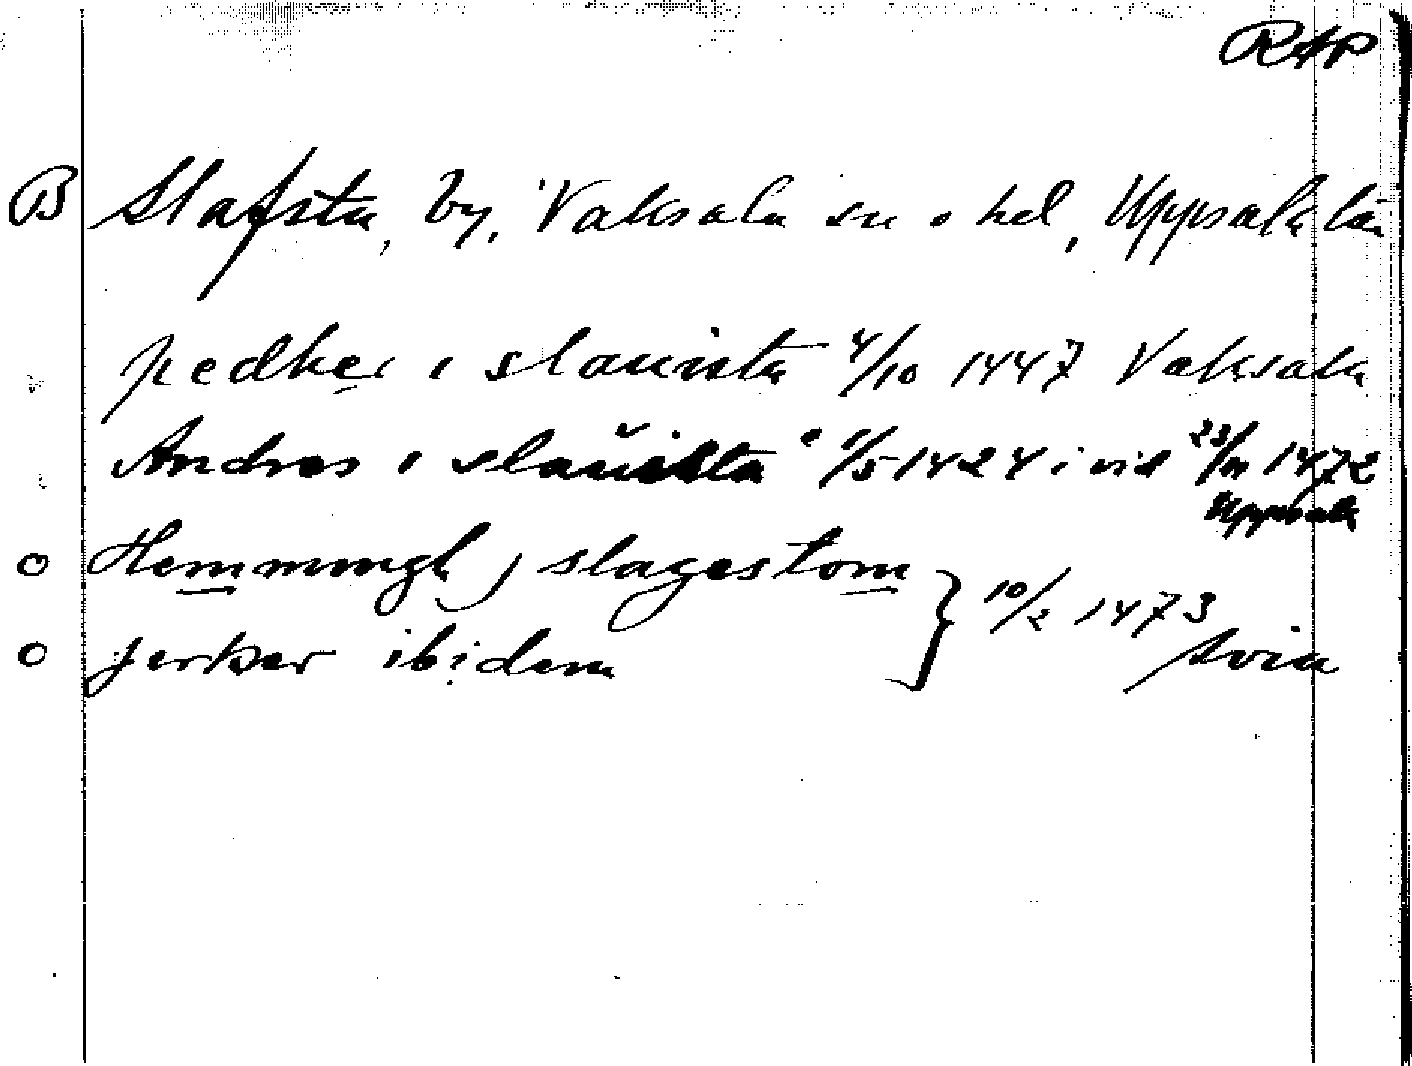 RAP
B Slafsta, by, Vaksala sn o hd, Uppsala län
pedher i slauista 4/10 1447 Vaksala
Andres i slauista 1/5 1424 i vid 23/11 1472
Uppsala
o Hemmingh j slagestom } 10/2 1473
o jerker ibidem Svia